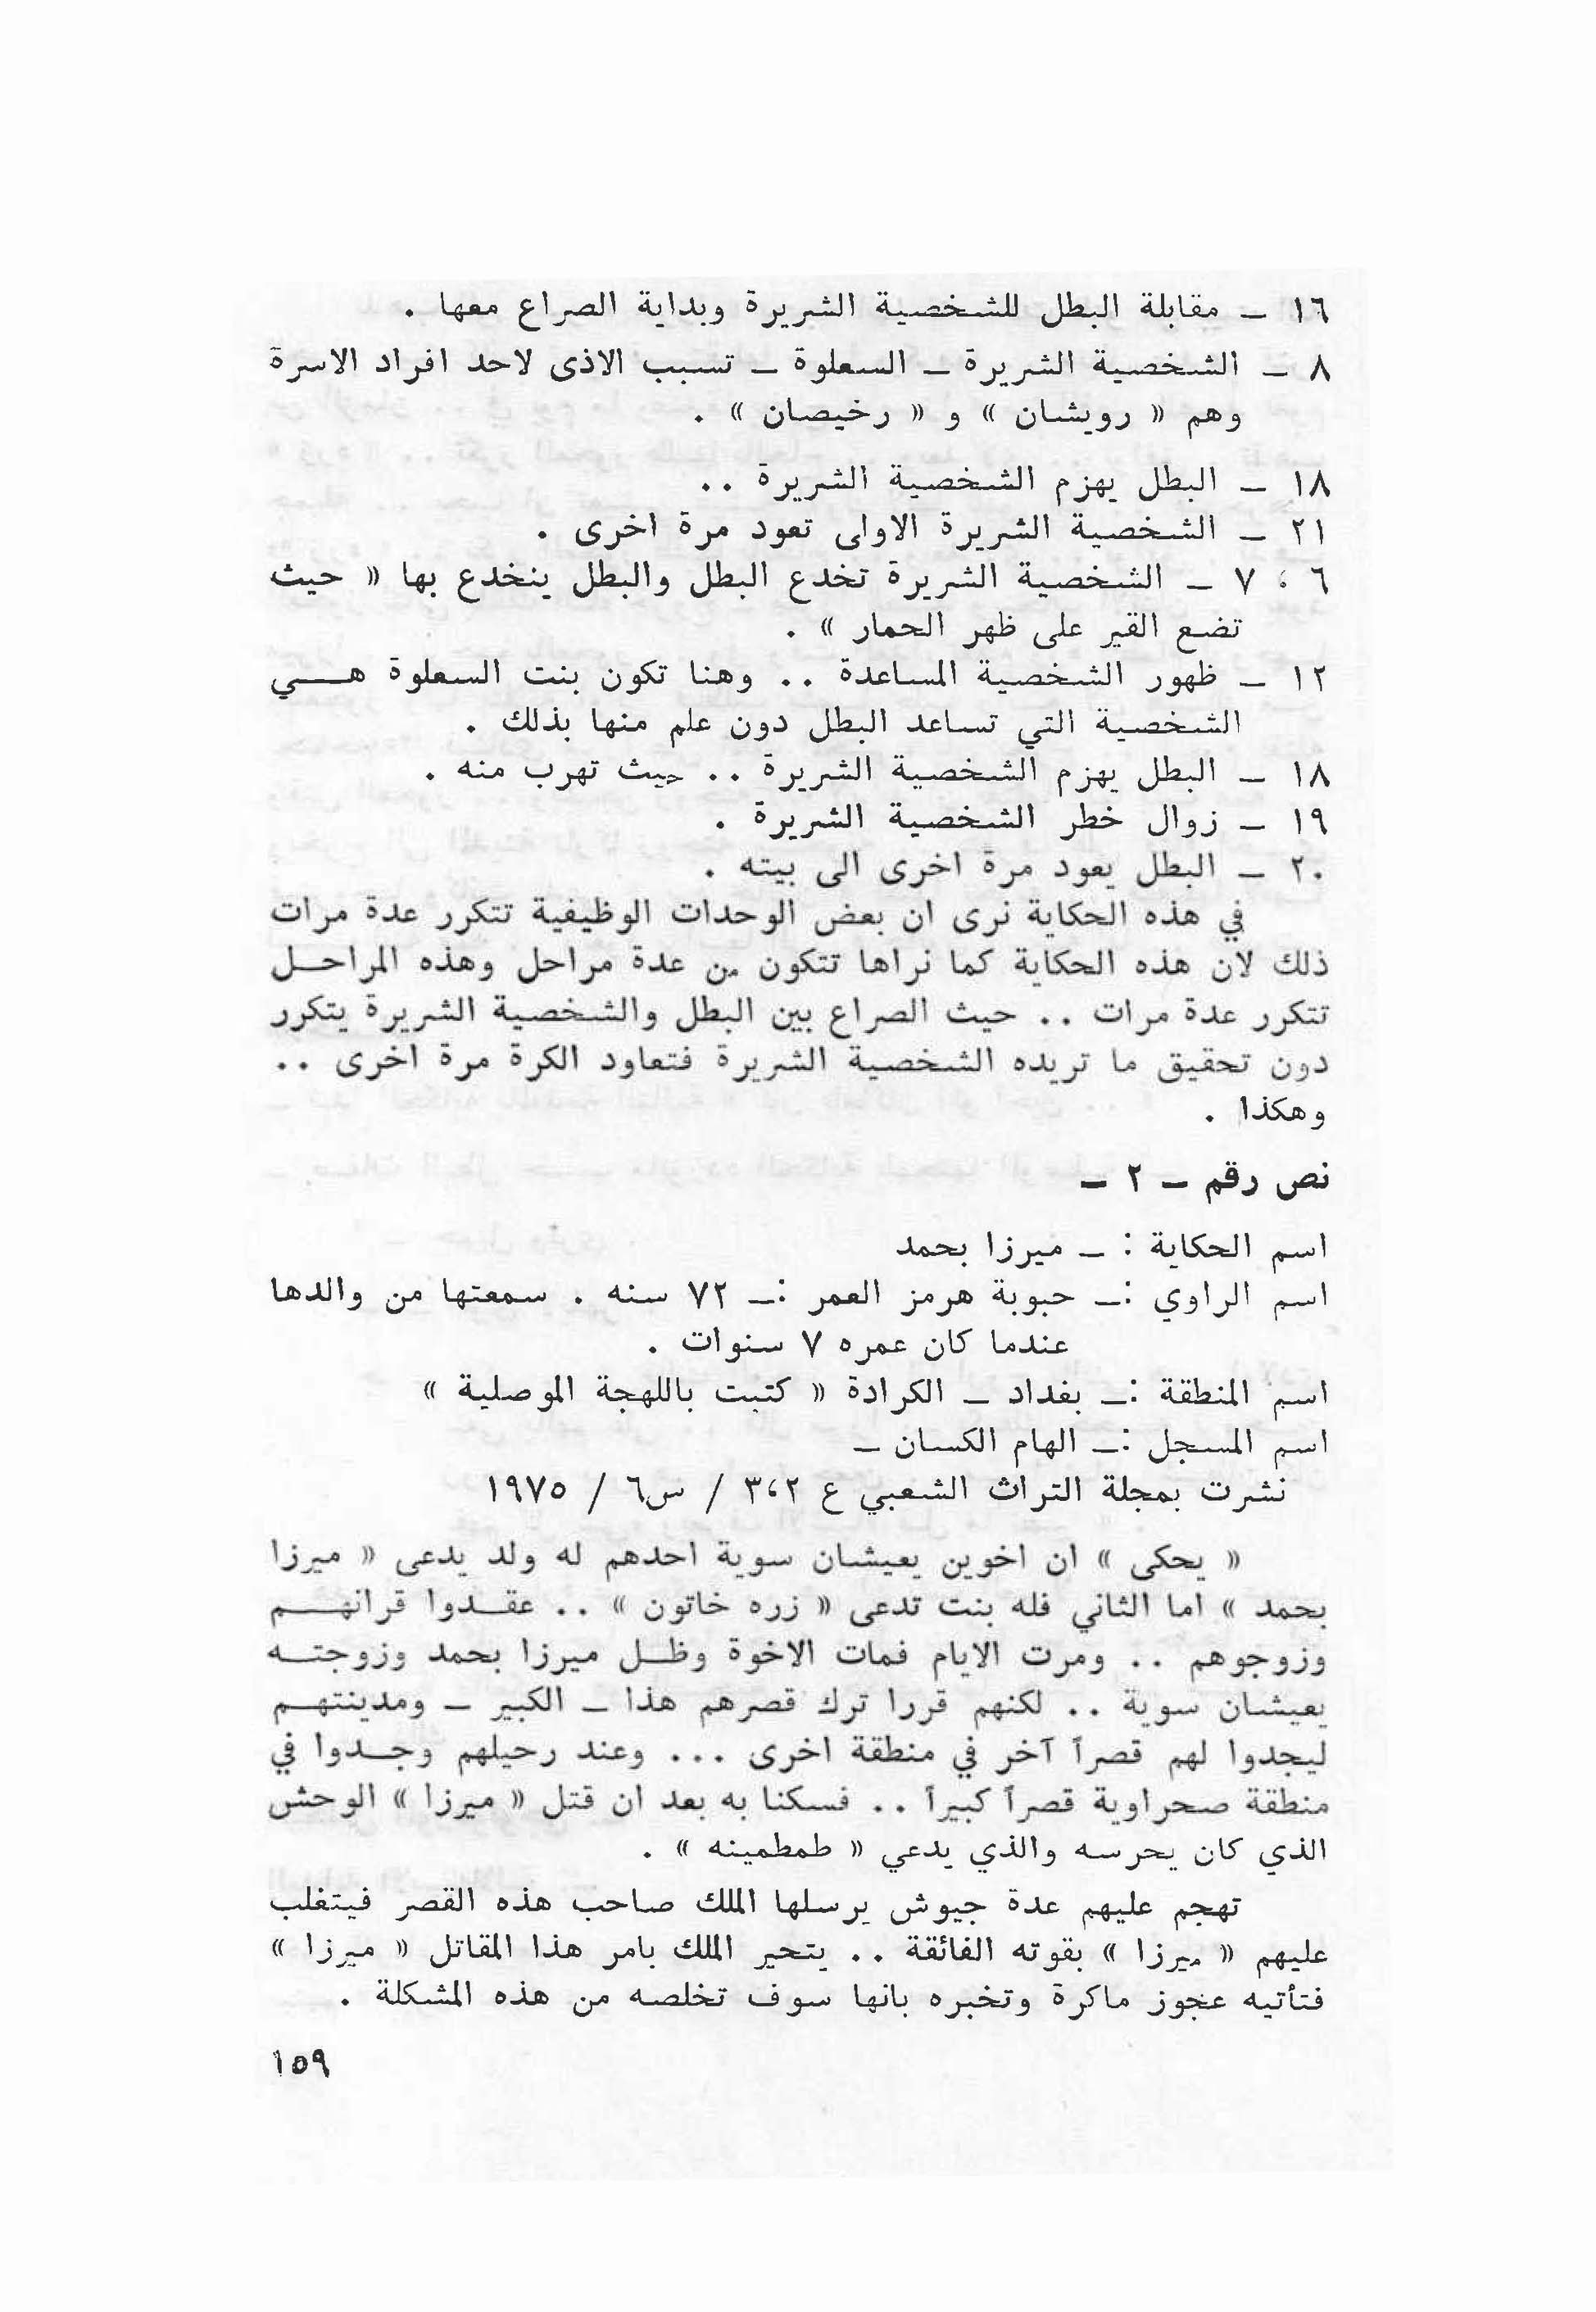 ١٦ – مقابلة البطل للشخصية الشريرة وبداية الصراع معها .
٨ – الشخصية الشريرة – السعلوة – تسبب الاذى لاحد افراد الاسرة
وهم « رويشان » و « رخيصان » .
١٨ – البطل يهزم الشخصية الشريرة ..
٢١ – الشخصية الشريرة الاولى تعود مرة اخرى .
٦ ، ٧ – الشخصية الشريرة تخدع البطل والبطل ينخدع بها « حيث
تضع القير على ظهر الحمار » .
١٢ – ظهور الشخصية المساعدة .. وهنا تكون بنت السعلوة هي
الشخصية التي تساعد البطل دون علم منها بذلك .
١٨ – البطل يهزم الشخصية الشريرة .. حيث تهرب منه .
١٩ – زوال خطر الشخصية الشريرة .
٢٠ – البطل يعود مرة اخرى الى بيته .
في هذه الحكاية نرى ان بعض الوحدات الوظيفية تتكرر عدة مرات
ذلك لان هذه الحكاية كما نراها تتكون من عدة مراحل وهذه المراحل
تتكرر عدة مرات .. حيث الصراع بين البطل والشخصية الشريرة يتكرر
دون تحقيق ما تريده الشخصية الشريرة فتعاود الكرة مرة اخرى ..
وهكذا .
نص رقم – ٢ –
اسم الحكاية : – ميرزا بحمد
اسم الراوي :– حبوبة هرمز العمر :– ٧٢ سنه . سمعتها من والدها
عندما كان عمره ٧ سنوات .
اسم المنطقة :– بغداد – الكرادة « كتبت باللهجة الموصلية »
اسم المسجل :– الهام الكسان –
نشرت بمجلة التراث الشعبي ع ٣،٢ / س٦ / ١٩٧٥
« يحكى » ان اخوين يعيشان سوية احدهم له ولد يدعى « ميرزا
بحمد » اما الثاني فله بنت تدعى « زره خاتون » .. عقدوا قرانهم
وزوجوهم .. ومرت الايام فمات الاخوة وظل ميرزا بحمد وزوجته
يعيشان سوية .. لكنهم قررا ترك قصرهم هذا – الكبير – ومدينتهم
ليجدوا لهم قصراً آخر في منطقة اخرى ... وعند رحيلهم وجدوا في
منطقة صحراوية قصراً كبيراً .. فسكنا به بعد ان قتل « ميرزا » الوحش
الذي كان يحرسه والذي يدعي « طمطمينه » .
تهجم عليهم عدة جيوش يرسلها الملك صاحب هذه القصر فيتغلب
عليهم « ميرزا » بقوته الفائقة .. يتحير الملك بامر هذا المقاتل « ميرزا »
فتأتيه عجوز ماكرة وتخبره بانها سوف تخلصه من هذه المشكلة .
١٥٩